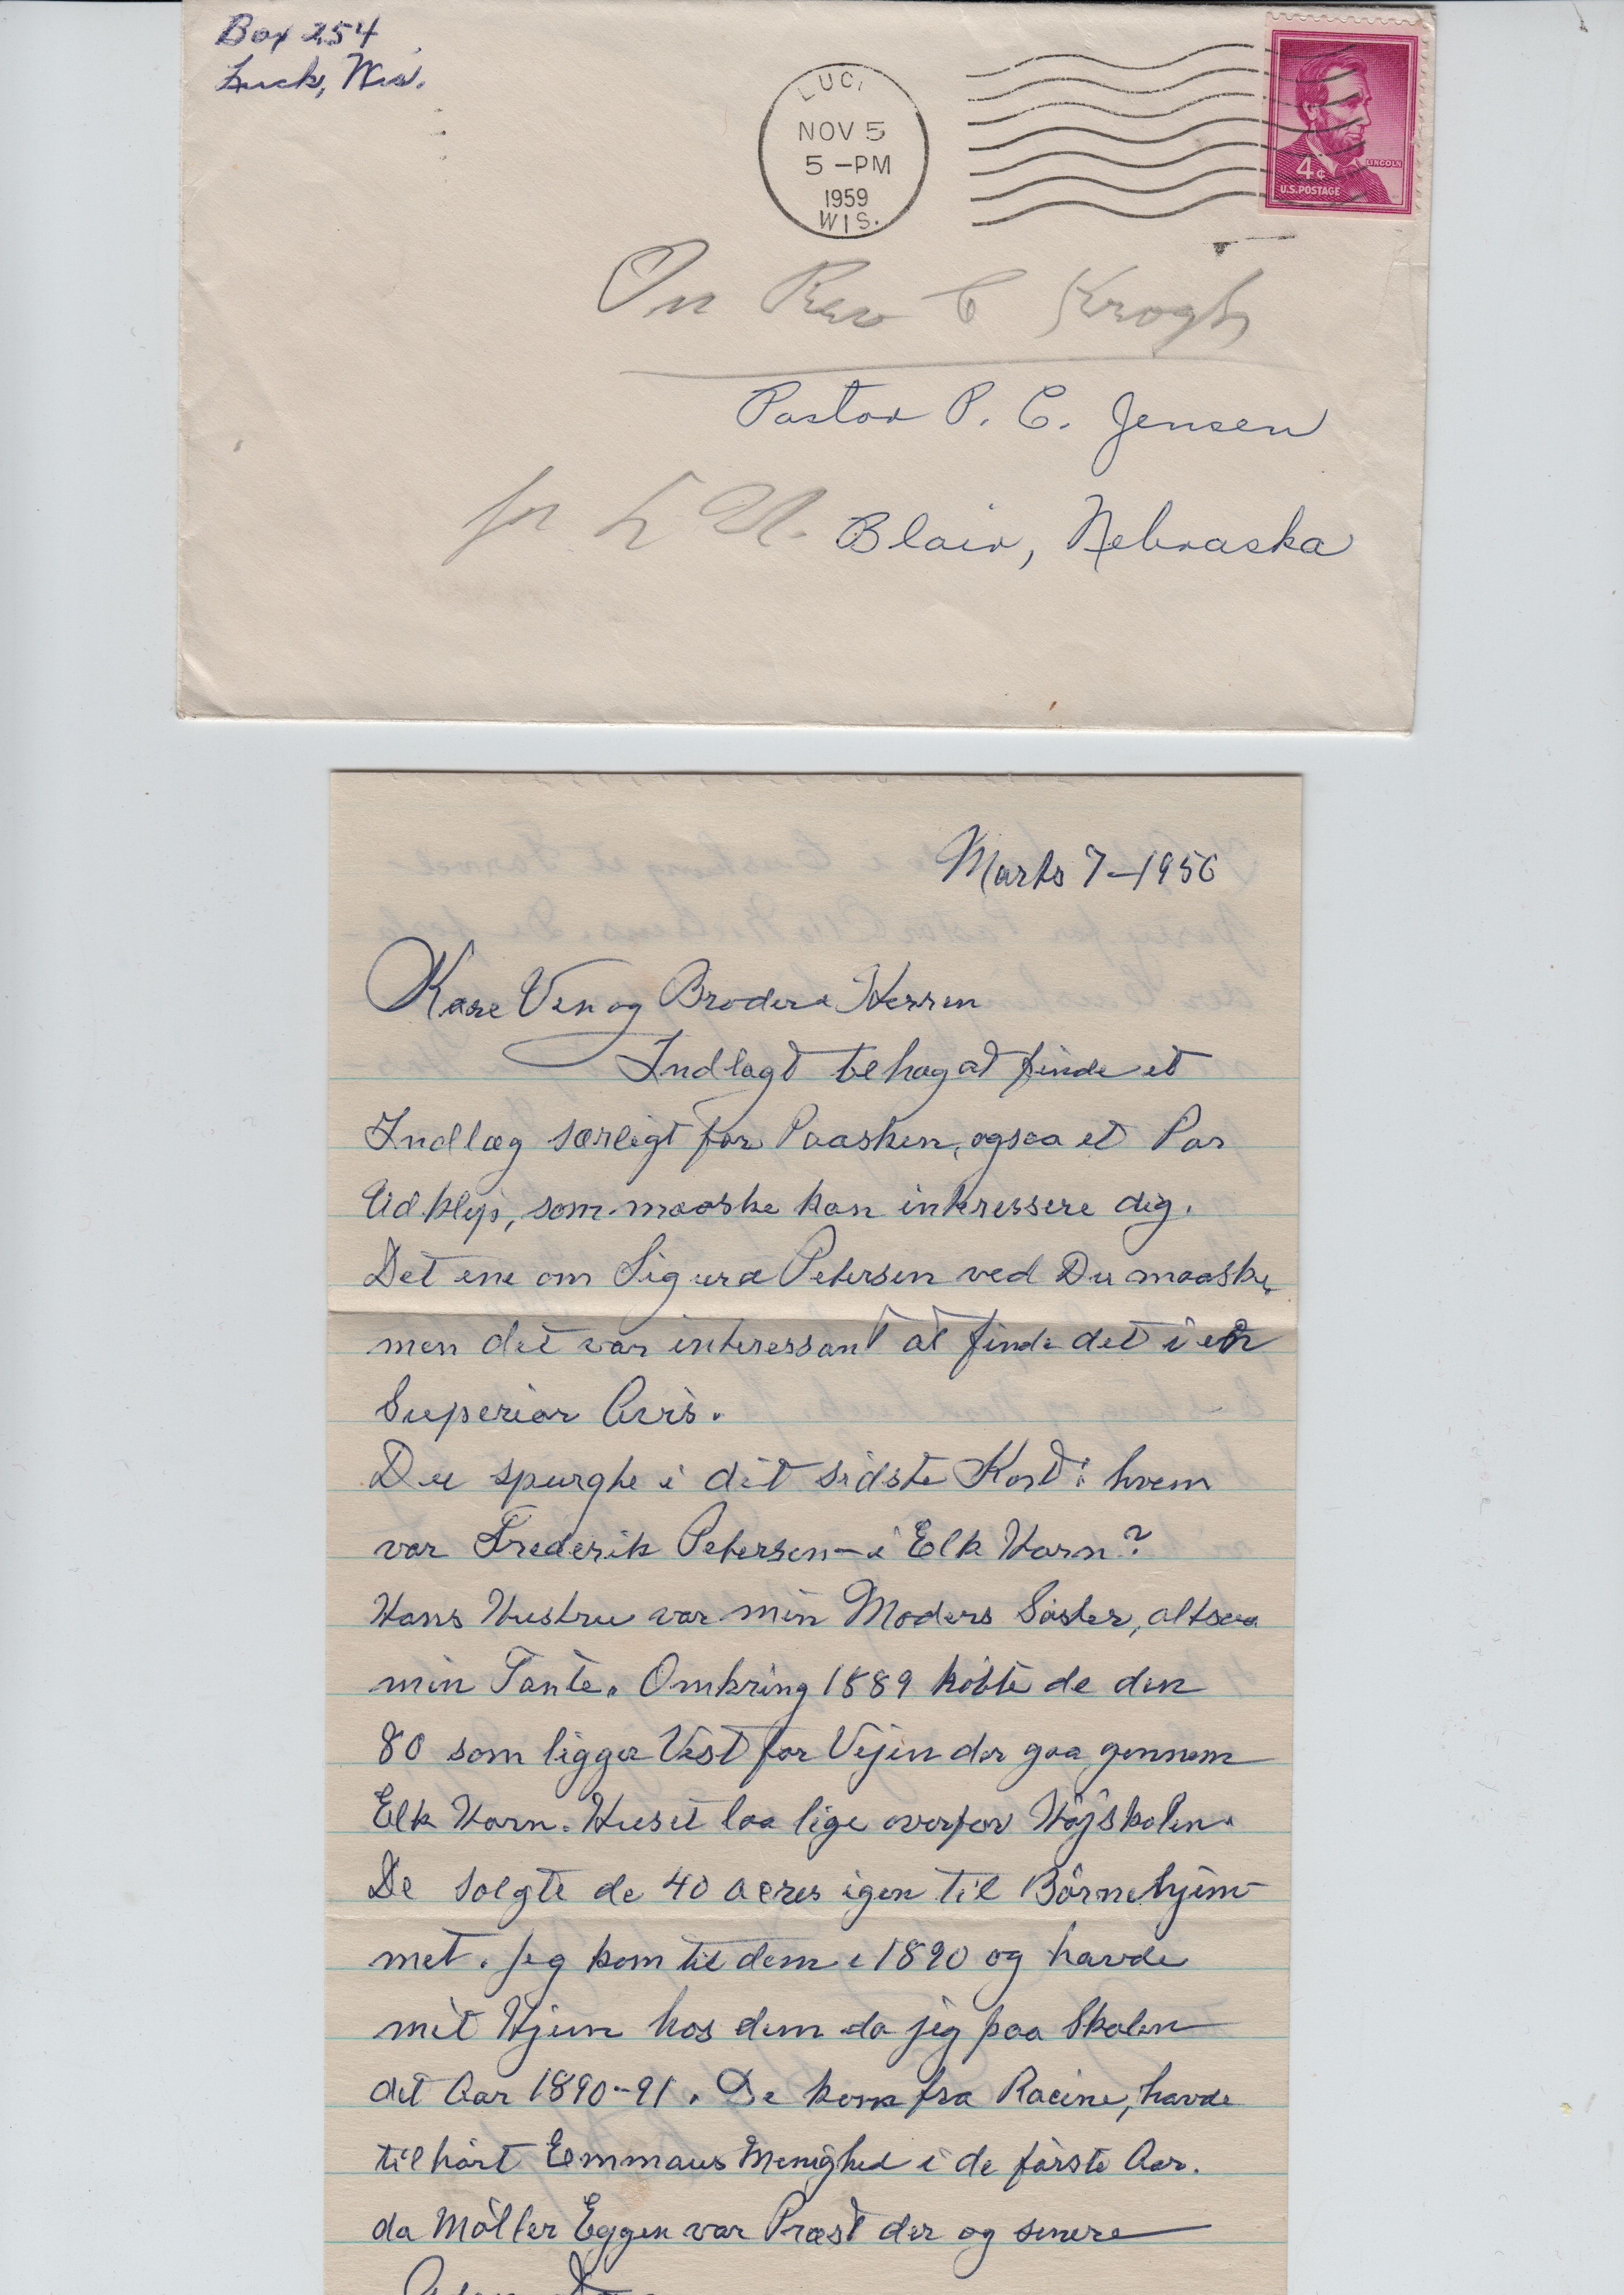 Box 254
Luck, Wis.
LUC
NOV 5
5 -PM
1959
WIS.
LINCOLN
4¢
U.S. POSTAGE
On Rev C Krogh
Pastor P. C. Jensen
for
Blair, Nebraska
Marts 7-1956
Kære Ven og Broder i Herren
Indlagt behag at finde et
Indlæg særligt for Paasken, ogsaa et Par
Udklip, som maaske kan interessere dig.
Det ene om Sigurd Petersen ved Du maaske,
men det var interessant at finde det i en
Superior Avis.
Du spurgte i dit sidste Kort: hvem
var Frederik Petersen - i Elk Horn?
Hans Hustru var min Moders Søster, altsaa
min Tante. Omkring 1889 købte de den
80 som ligger Vest for Vejen der gaa gennem
Elk Horn. Huset laa lige overfor Højskolen.
De solgte de 40 acres igen til Börnehjem-
met. Jeg kom til dem i 1890 og havde
mit Hjem hos dem da jeg paa Skolen
det Aar 1890-91. De kom fra Racine, havde
tilhört Emmaus Menighed i de förste Aar.
da Möller Eggen var Præst der og senere